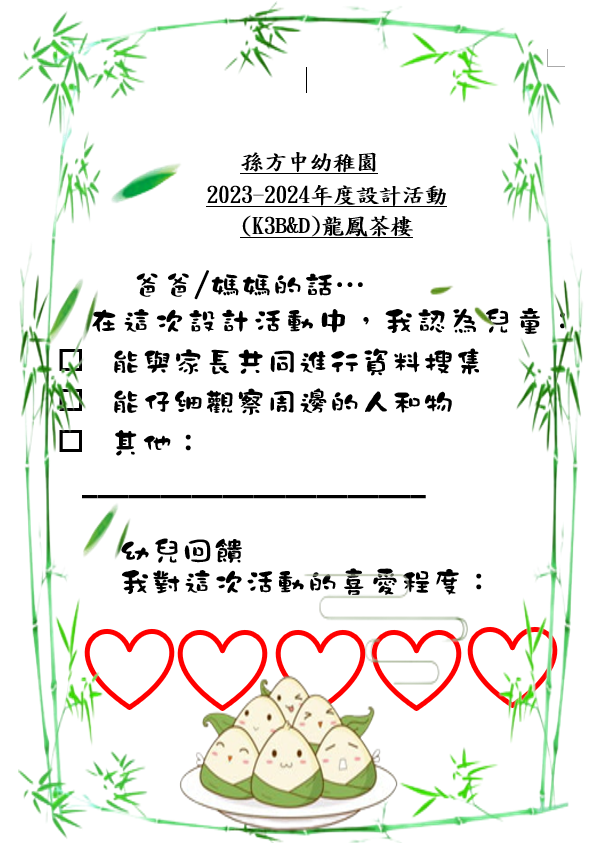 孫方中幼稚園
2023-2024年度設計活動
(K3B&D)龍鳳茶樓
爸爸/媽媽的話…
在這次設計活動中，我認為兒童：
□ 能與家長共同進行資料搜集
□ 能仔細觀察周邊的人和物
□ 其他：
______________________
幼兒回饋
我對這次活動的喜愛程度：